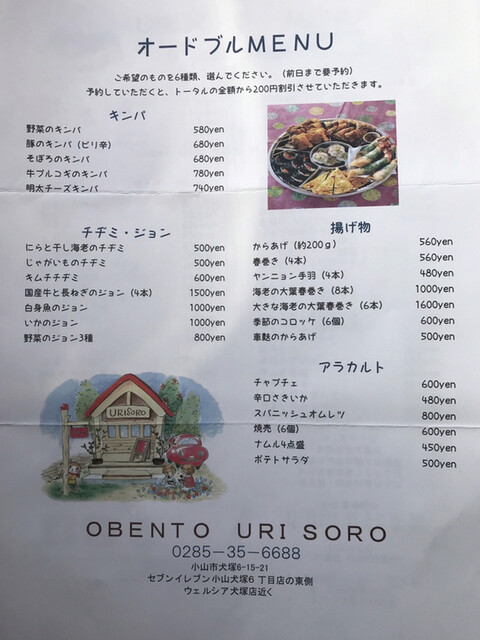 オードブルMENU
ご希望のものを6種類、選んでください。(前日まで要予約)
予約していただくと、トータルの金額から200円割引させていただきます。
キンパ
野菜のキンパ 580yen
豚のキンパ(ピリ辛) 680yen
そぼろのキンパ 680yen
牛プルコギのキンパ 780yen
明太チーズキンパ 740yen
チヂミ・ジョン
にらと干し海老のチヂミ 500yen
じゃがいものチヂミ 500yen
キムチチヂミ 600yen
国産牛と長ねぎのジョン(4本) 1500yen
白身魚のジョン 1000yen
いかのジョン 1000yen
野菜のジョン3種 800yen
揚げ物
からあげ(約200g) 560yen
春巻き(4本) 560yen
ヤンニョン手羽(4本) 480yen
海老の大葉春巻き(8本) 1000yen
大きな海老の大葉春巻き(6本) 1600yen
季節のコロッケ(6個) 600yen
車麩のからあげ 500yen
アラカルト
チャプチェ 600yen
辛口さきいか 480yen
スパニッシュオムレツ 800yen
焼売(6個) 600yen
ナムル4点盛 450yen
ポテトサラダ 500yen
URISORO
OBENTO URI SORO
0285-35-6688
小山市犬塚6-15-21
セブンイレブン小山犬塚6丁目店の東側
ウェルシア犬塚店近く